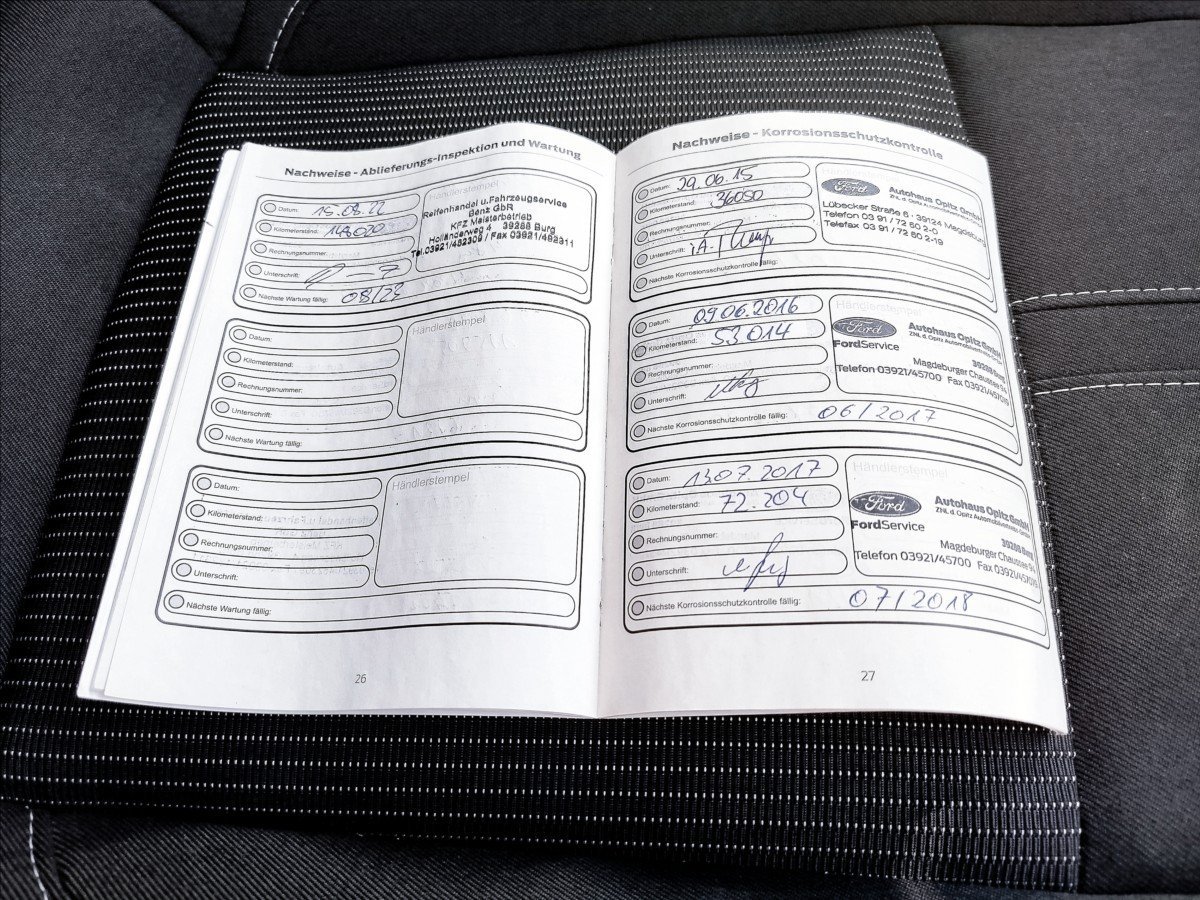 Nachweise - Ablieferungs-Inspektion und Wartung
Datum: 15.08.22
Kilometerstand: 148020
Rechnungsnummer:
Unterschrift:
Nächste Wartung fällig: 08/23
Händlerstempel
Reifenhandel u.Fahrzeugservice
Benz GbR
KFZ Meisterbetrieb
Holländerweg 4 39288 Burg
Tel.03921/482309 / Fax 03921/482311
Datum:
Kilometerstand:
Rechnungsnummer:
Unterschrift:
Nächste Wartung fällig:
Händlerstempel
Datum:
Kilometerstand:
Rechnungsnummer:
Unterschrift:
Nächste Wartung fällig:
Händlerstempel
26
Nachweise - Korrosionsschutzkontrolle
Datum: 29.06.15
Kilometerstand: 36050
Rechnungsnummer:
Unterschrift: i.A.
Nächste Korrosionsschutzkontrolle fällig:
Ford
Autohaus Opitz GmbH
ZNL d. Opitz Automobilvertriebs-GmbH
Lübecker Straße 6 · 39124 Magdeburg
Telefon 03 91 / 72 60 2-0
Telefax 03 91 / 72 60 2-19
Datum: 09.06.2016
Kilometerstand: 53014
Rechnungsnummer:
Unterschrift:
Nächste Korrosionsschutzkontrolle fällig: 06/2017
Händlerstempel
Ford
Autohaus Opitz GmbH
ZNL d. Opitz Automobilvertriebs-GmbH
FordService
39288 Burg
Magdeburger Chaussee
Telefon 03921/45700 Fax 03921/457019
Datum: 13.07.2017
Kilometerstand: 72.204
Rechnungsnummer:
Unterschrift:
Nächste Korrosionsschutzkontrolle fällig: 07/2018
Händlerstempel
Ford
Autohaus Opitz GmbH
ZNL d. Opitz Automobilvertriebs-GmbH
FordService
39288 Burg
Magdeburger Chaussee
Telefon 03921/45700 Fax 03921/457019
27